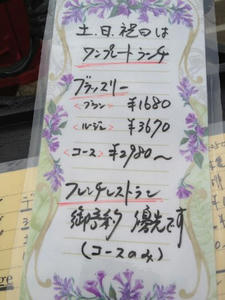 土、日、祝日は
ワンプレートランチ
ブラッスリー
<ブラン> ¥1680
<ルージュ> ¥3670
<コース> ¥2980〜
フレンチレストラン
御予約 優先です
(コースのみ)